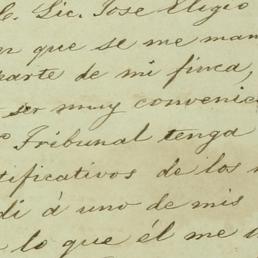 C. Lic. José Eligio
que se me man
parte de mi finca,
ser muy convenie
Tribunal tenga
tificativos de los
di á uno de mis
lo que él me